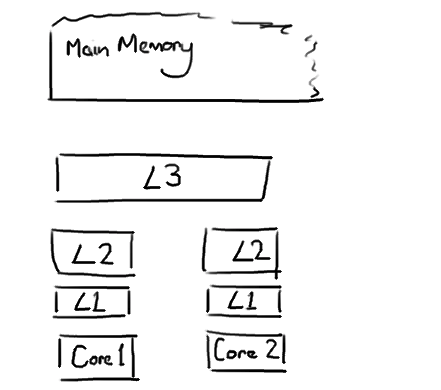 Main Memory
L3
L2 L2
L1 L1
Core 1 Core 2